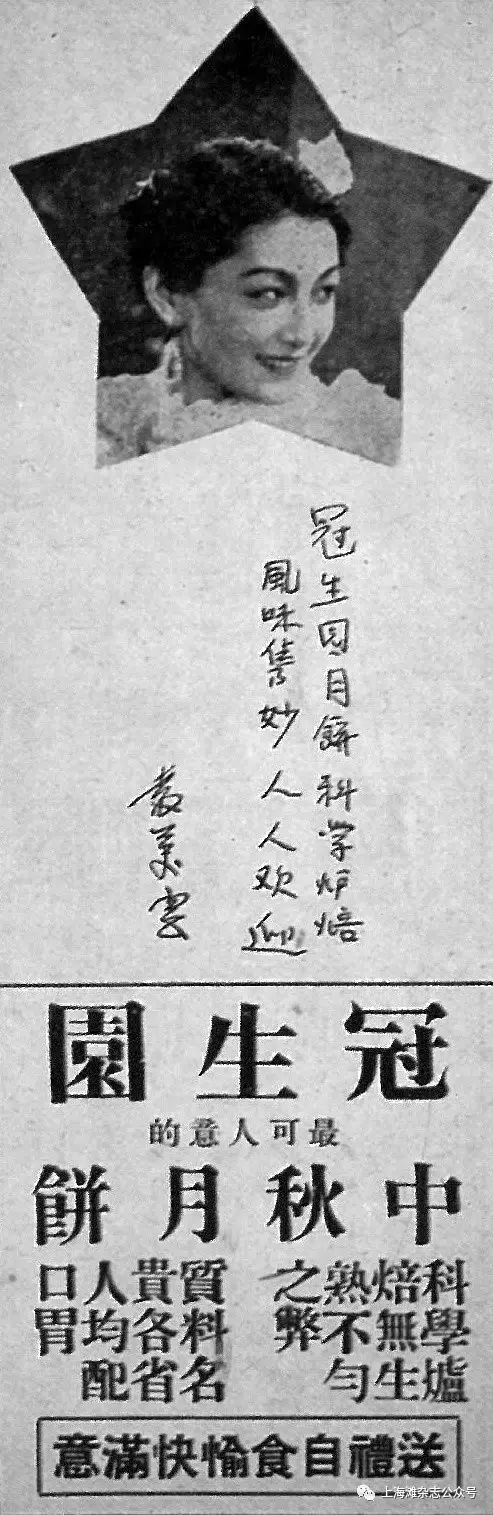 冠生园月餅科学炉焙
風味雋妙人人欢迎
袁美雲
冠生園
最可人意的
中秋月餅
科學爐
焙無生
熟不勻
之弊
質料名
貴各省
人均配
口胃
送禮自食愉快滿意
上海滩杂志公众号